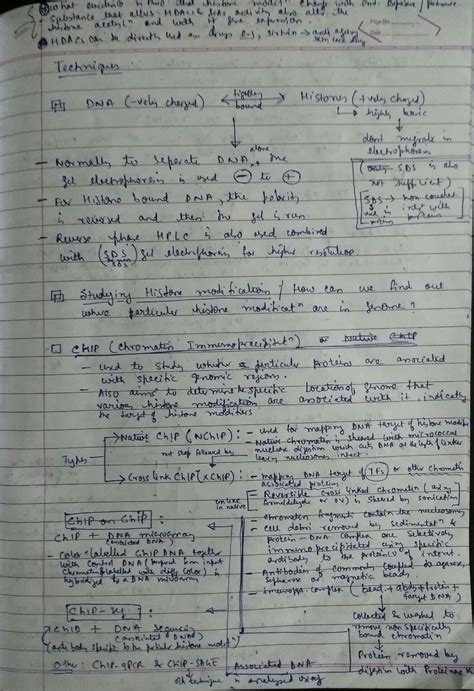 what evidence is there that histone modifⁿ change with
Substance that alters HDACs & HATs activity also alter the
histone acetylⁿ and with it gene expression.
HDACs can be directly used as drugs e.g., sirtuin → anti ageing skin care drug
Page No.
Date
Techniques:
DNA (-vely charged) ← tightly bound → Histones (+vely charged)
↳ highly basic
dont migrate in electrophoresis
- Normally to separate DNA alone, the
gel electrophoresis is used ⊖ to ⊕
- For Histone bound DNA, the polarity
is reversed and then the gel is run
- Reverse phase HPLC is also used combined
with (SDS) gel electrophoresis for higher resolution.
SDS is also
not sufficient)
SDS → non covalent
Studying Histone modification / How can we find out
where particular histone modificatⁿ are in genome?
CHIP (Chromatin Immunoprecipitatⁿ) or Native ChIP
- used to study whether particular proteins are associated
with specific genomic regions.
- Also aims to determine specific location of genome that
various histone modification are associated with it, indicating
the target of histone modifiers
Types
→ Native ChIP (NChIP): - used for mapping DNA target of histone modifiers
- Native chromatin is sheared with micrococcal
nuclease digestion which cuts DNA at the length of linker
leaving nucleosomes intact
not step followed by
→ Cross link ChIP (XChIP): - mapping DNA target of TFs or other chromatin
associated protein
unlike in native
- Reversible cross linked chromatin (using
formaldehyde or UV) is sheared by sonication
- chromatin fragments contain the nucleosomes
- cell debri removed by sedimentatⁿ &
protein-DNA complex are selectively
immunoprecipitated using specific
antibody to the protein of interest.
- Antibodies of commonly coupled to agarose,
sepharose or magnetic beads.
- Immunoppt complex (bead + abdy + protein + target DNA)
collected & washed to
remove non specifically
bound chromatin
→ Protein removed by
digestion with Proteinase K
Associated DNA
analysed using
ChIP on Chip:
ChIP + DNA microarray
(associated DNA)
- Color labelled ChIP DNA together
with control DNA (prepared from input
chromatin & labelled with diff. color) is
hybridized to a DNA microarray
ChIP-Seq:
→ ChIP + DNA sequencing
(associated DNA)
(antibody specific to the particular histone modifⁿ)
Other: ChIP-qPCR & ChIP-SAGE